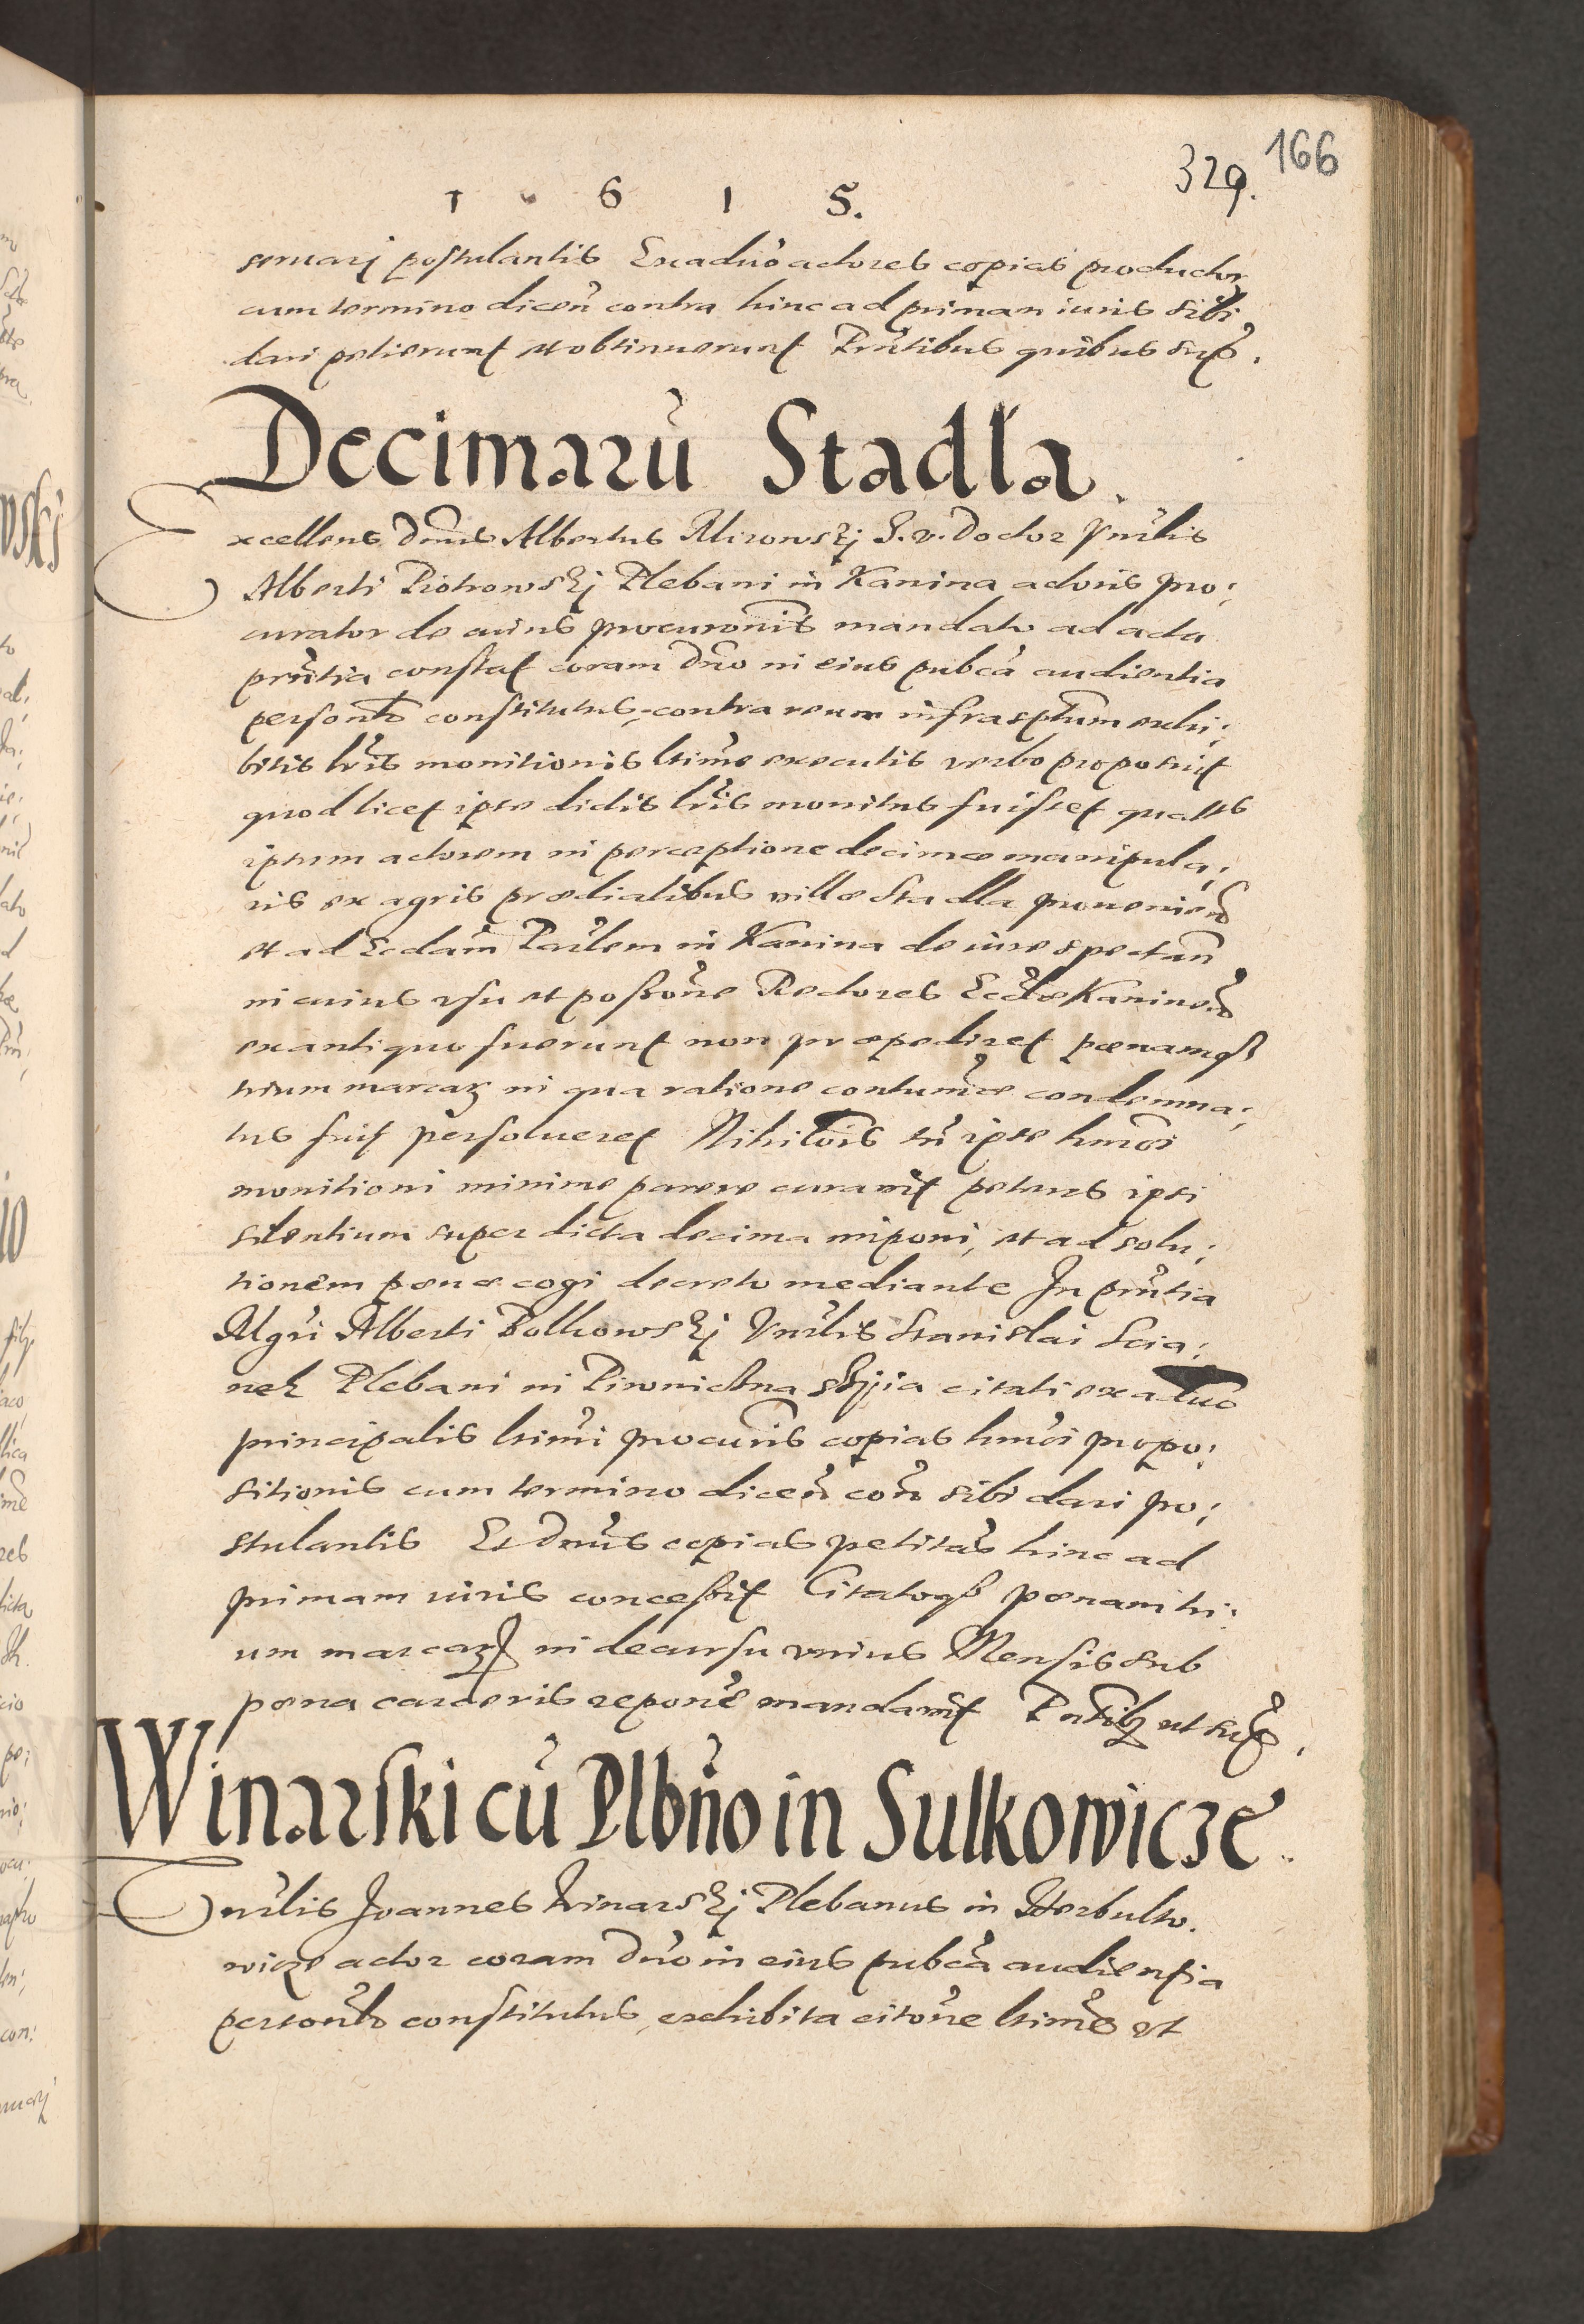 166
329.
1 6 1 5.
seruarj postulantis Ex aduo actores copias productor
cum termino diceñ contra hinc ad primam iuris sibi
dari petierunt et obtinuerunt Pñtibus quibus sup̃.
Decimarũ Stadla.
Excellens Dñus Albertus Mirowskj I. v. Doctor Vnrlis
Alberti Piotrowskj Plebani in Kanina actoris pro:
curator de cuius procurõnis mandato ad acta
prñtia constat coram Dño in eius pubcã audientia
personlr constitutus, contra reum infrasptum exhi:
bitis lr̃is monitionis ltime executis verbo proposuit
quod licet ipse dictis lr̃is monitus fuisset quatts
ipsum actorem in perceptione decimæ manipula:
ris ex agris prædialibus villæ Stadla proueniẽ
et ad Ecclam Parlem in Kanina de iure spectañ
in cuius vsu et possõne Rectores Ecclæ Kaninens
ex antiquo fuerunt non præpediret pœnamq3
trium marcar in qua ratione contumæ condemna:
tus fuit persolueret Nihilois tñ ipse hmõi
monitioni minime parere curauit petens ipsi
silentium super dicta decima imponi, et ad solu:
tionem pœnæ cogi decreto mediante In prñtia
Mgri Alberti Bolkowskj Vnrlis Stanislai Scia:
nek Plebani in Piwniczna citati ex aduo
principalis ltimi procuris copias hmõi propo:
sitionis cum termino diceñ coñ sibi dari po:
stulantis Et Dñus copias petitas hinc ad
primam iuris concessit Citatoq3 pœnam tri:
um marcar in decursu vnius Mensis sub
pœna carceris reponẽ mandauit Pñtib9 ut sup̃.
Winarski cũ Plbño in Sulkowicze.
Vnrlis Joannes Winarskj Plebanus in Herbulto.
wicze actor coram Dño in eius pubcã audientia
personlr constitutus, exhibita citõne ltime et